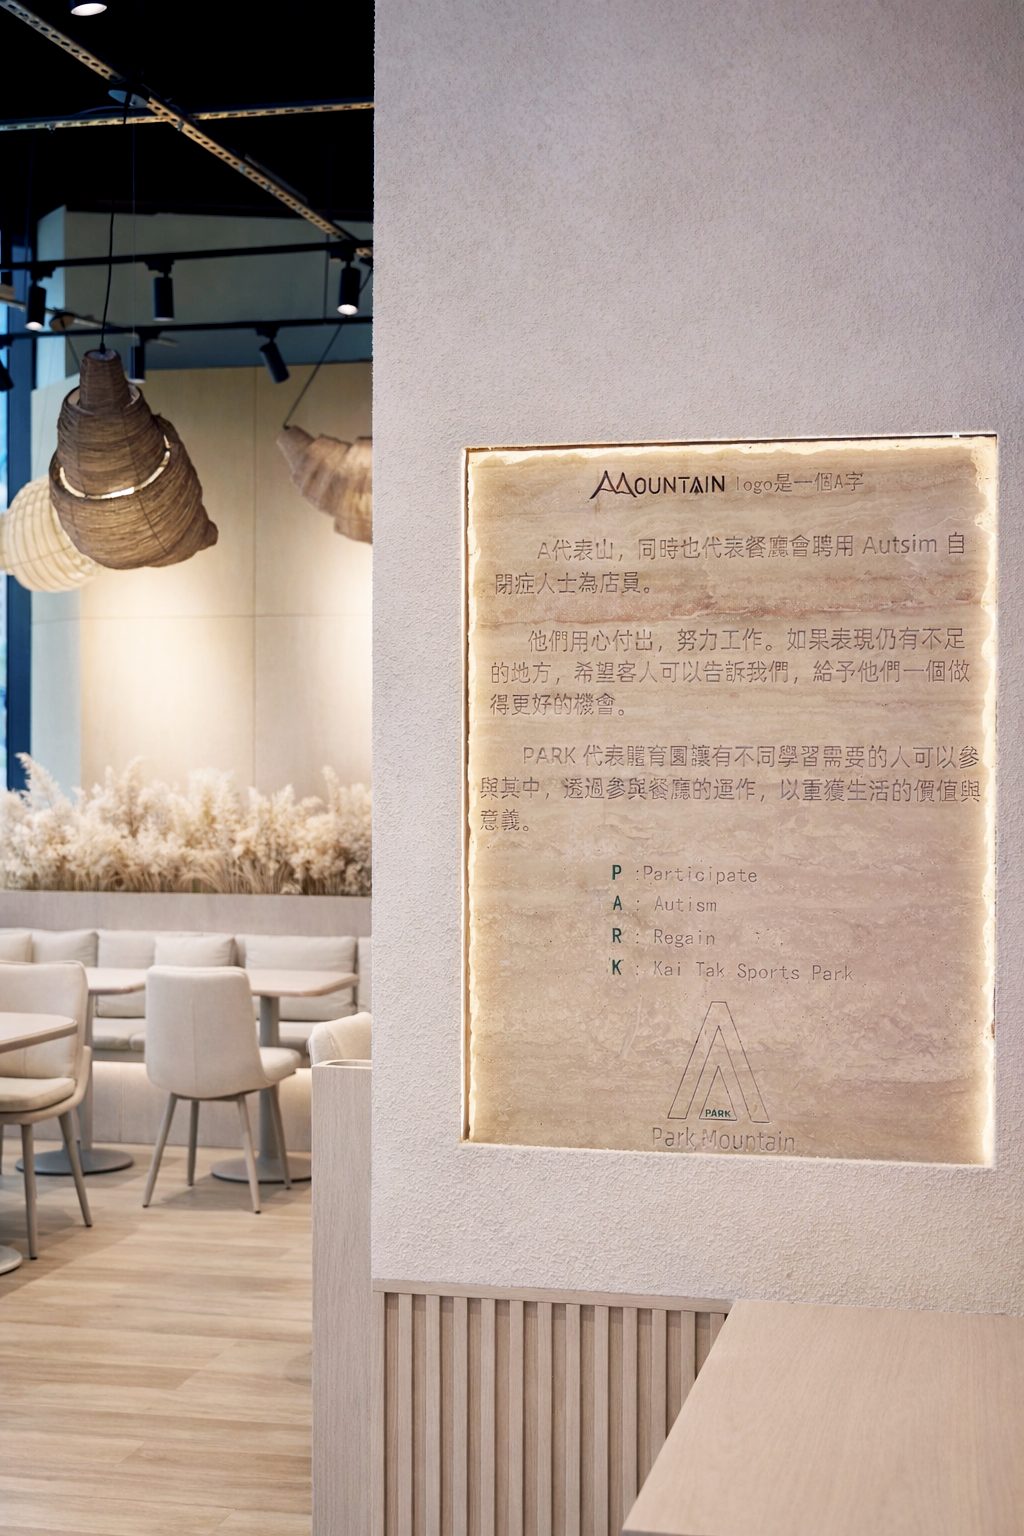 MOUNTAIN logo是一個A字
A代表山，同時也代表餐廳會聘用 Autsim 自
閉症人士為店員。
他們用心付出，努力工作。如果表現仍有不足
的地方，希望客人可以告訴我們，給予他們一個做
得更好的機會。
PARK 代表體育園讓有不同學習需要的人可以參
與其中，透過參與餐廳的運作，以重獲生活的價值與
意義。
P :Participate
A : Autism
R : Regain
K : Kai Tak Sports Park
PARK
Park Mountain